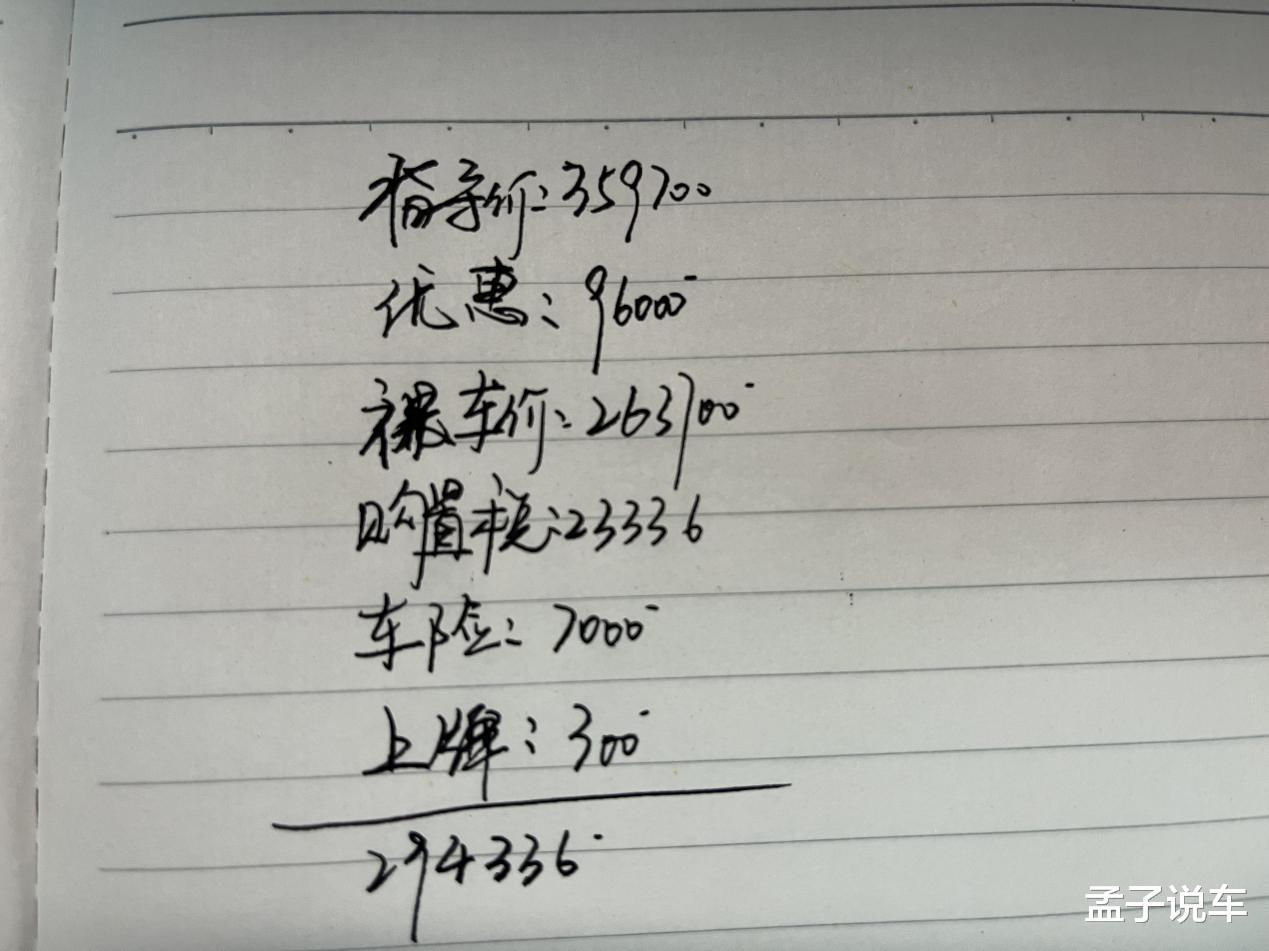 指导价：359700
优惠：96000
裸车价：263700
购置税：23336
车险：7000
上牌：300
294336
孟子说车